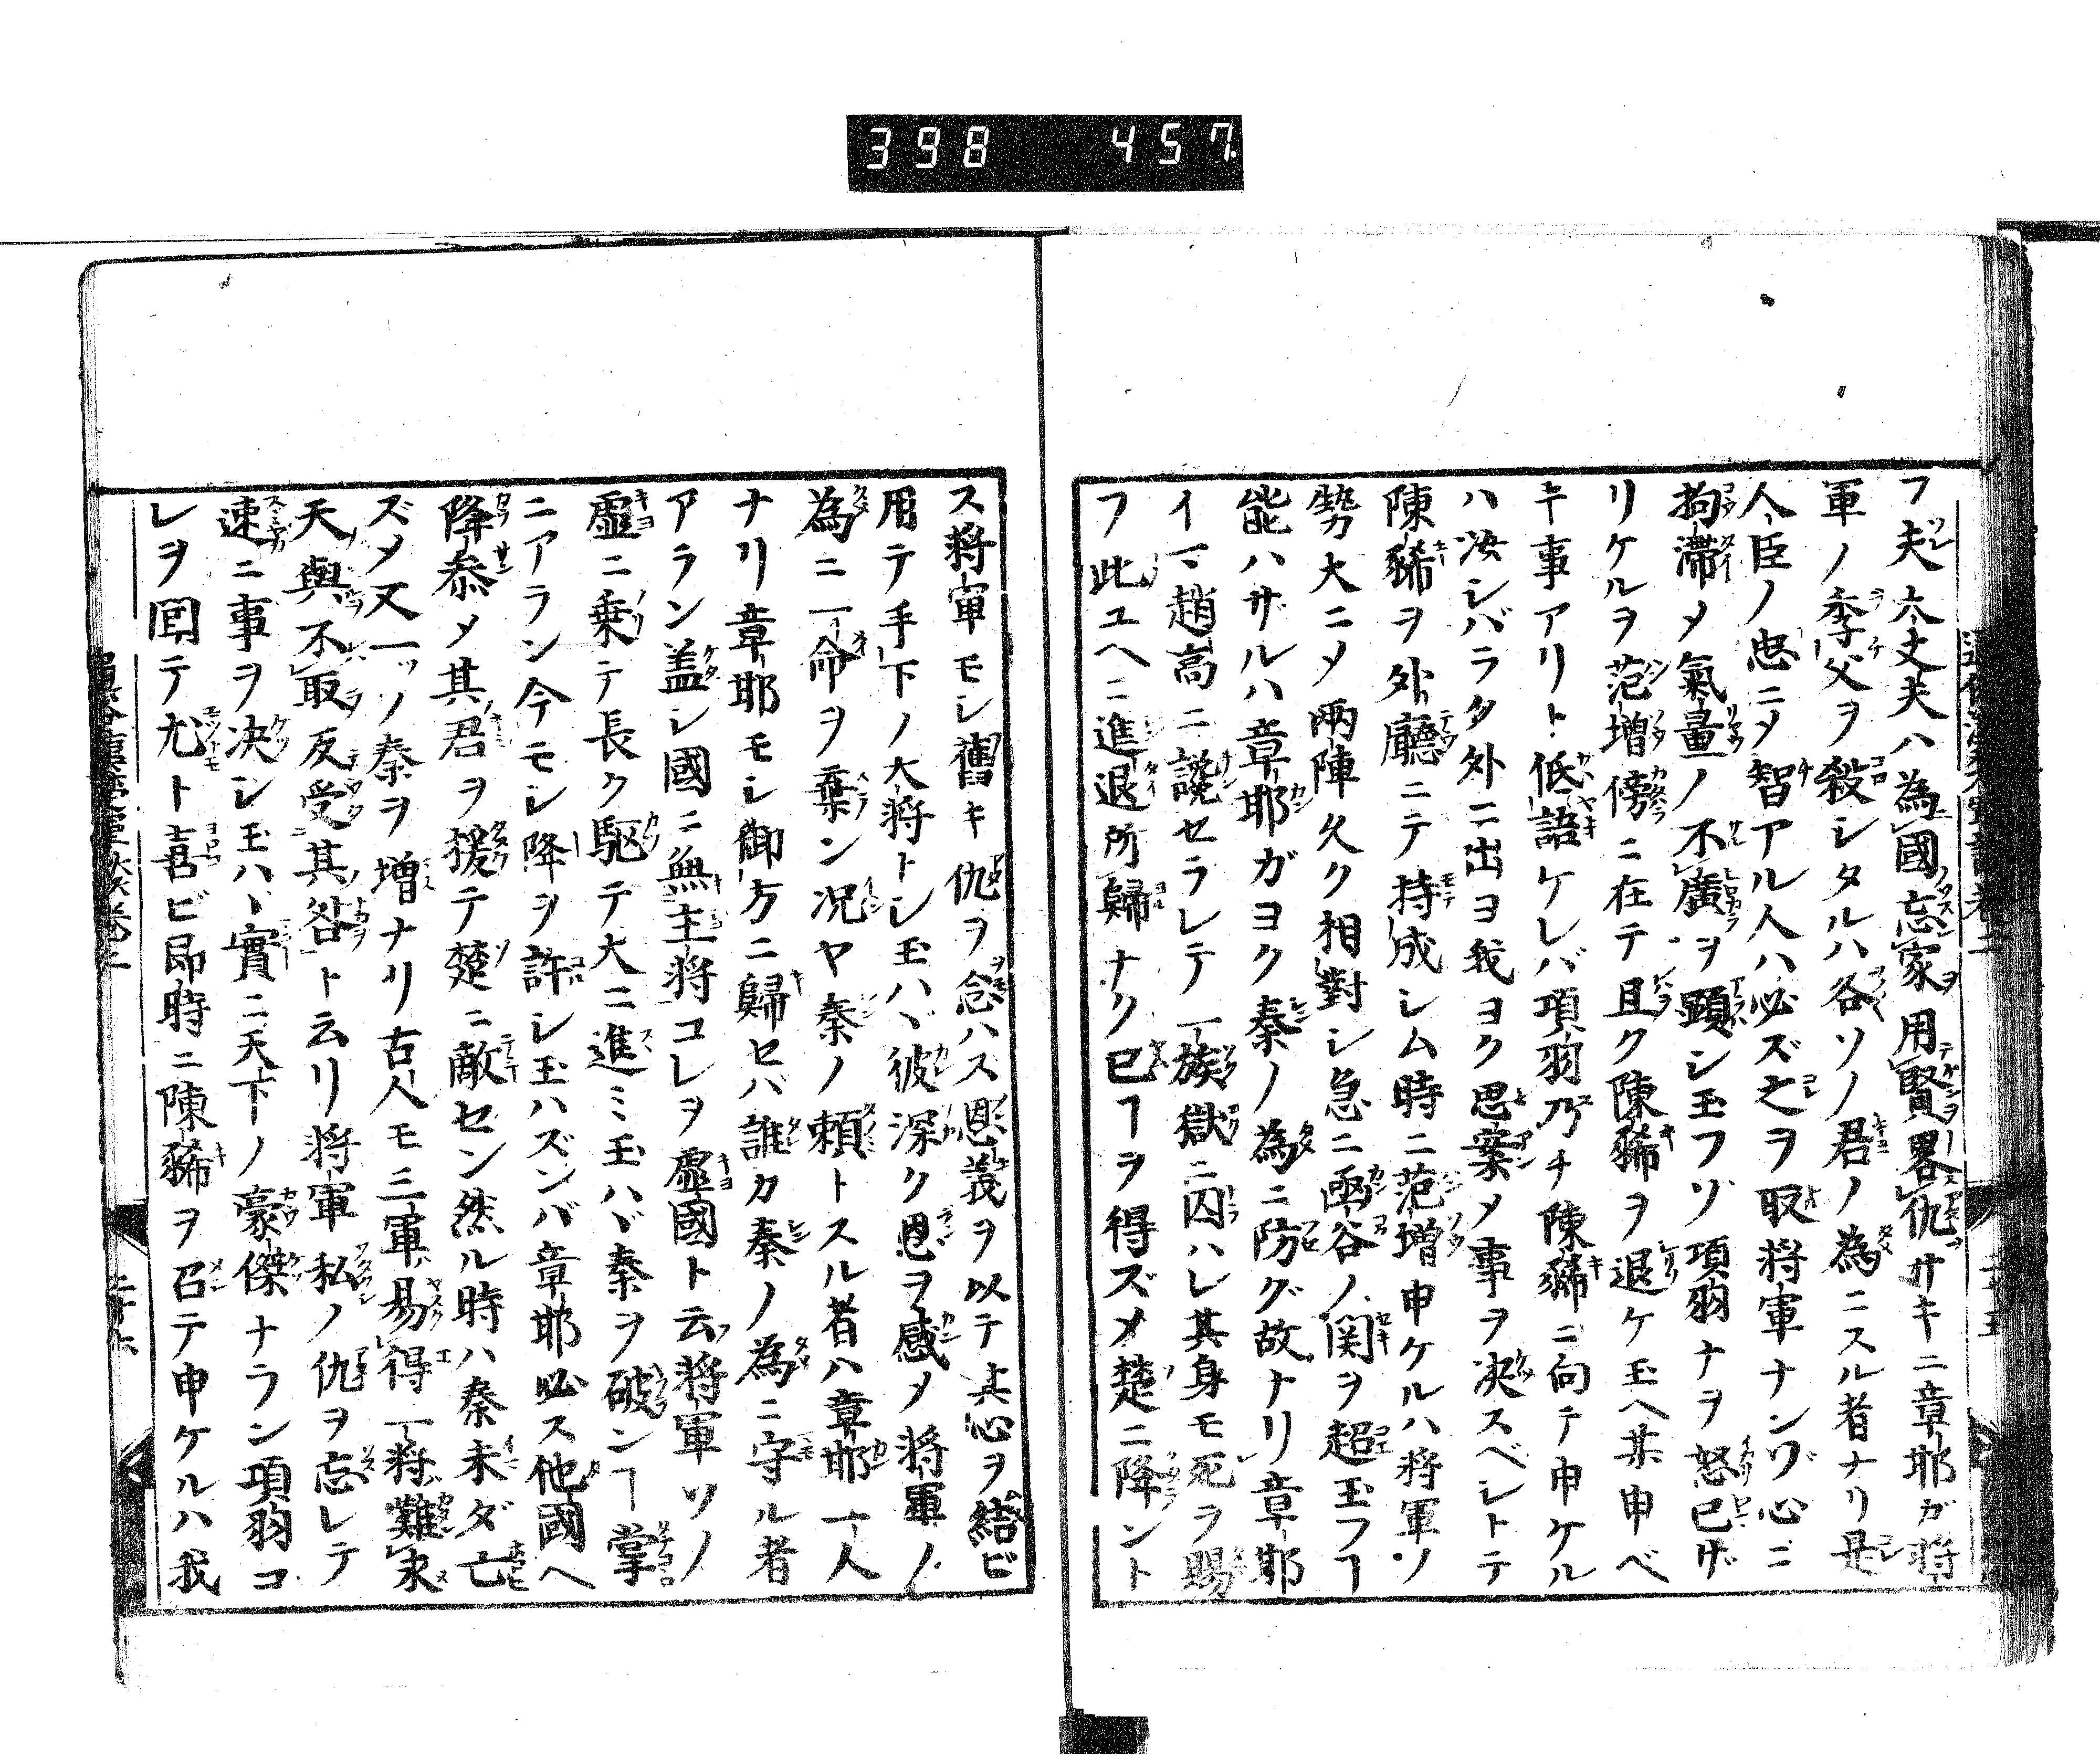 398 457
フ夫大丈夫ハ為國忘家用賢畧仇サキニ章邯ガ將
軍ノ季父ヲ殺シタルハ各ソノ君ノ為ニスル者ナリ是
人臣ノ忠ニメ智アル人ハ必ズ之ヲ取將軍ナンゾ心ニ
拘滞メ氣量ノ不廣ヲ顕シ玉フゾ項羽ナヲ怒已ザ
リケルヲ范増傍ニ在テ且ク陳豨ヲ退ケ玉ヘ某申ベ
キ事アリト低語ケレバ項羽乃チ陳豨ニ向テ申ケル
ハ汝シバラク外ニ出ヨ我ヨク思案メ事ヲ决スベシトテ
陳豨ヲ外廳ニテ持成シム時ニ范増申ケルハ将軍ソノ
勢大ニメ兩陣久ク相對シ急ニ函谷ノ関ヲ超玉フヿ
能ハザルハ章邯ガヨク秦ノ為ニ防グ故ナリ章邯
イマ趙高ニ讒セラレテ一族獄ニ囚ハレ其身モ死ヲ賜
フ此ユヘニ進退所歸ナク已ヿヲ得ズメ楚ニ降ント
ス將軍モシ舊キ仇ヲ念ハス恩義ヲ以テ其心ヲ結ビ
用テ手下ノ大将トシ玉ハヾ彼深ク恩ヲ感メ将軍ノ
為ニ一命ヲ棄ン况ヤ秦ノ頼トスル者ハ章邯一人
ナリ章邯モシ御方ニ歸セバ誰カ秦ノ為ニ守ル者
アラン盖シ國ニ無主将コレヲ虚國ト云将軍ソノ
虚ニ乗テ長ク駆テ大ニ進ミ玉ハヾ秦ヲ破ンヿ掌
ニアラン今モシ降ヲ許シ玉ハズンバ章邯必ス他國ヘ
降参メ其君ヲ援テ楚ニ敵セン然ル時ハ秦未ダ亡
ズメ又一ツノ秦ヲ増ナリ古人モ三軍易得一将難求
天與不取反受其咎ト云リ将軍私ノ仇ヲ忘レテ
速ニ事ヲ决シ玉ハヾ實ニ天下ノ豪傑ナラン項羽コ
レヲ聞テ尤ト喜ビ即時ニ陳豨ヲ召テ申ケルハ我
二十六